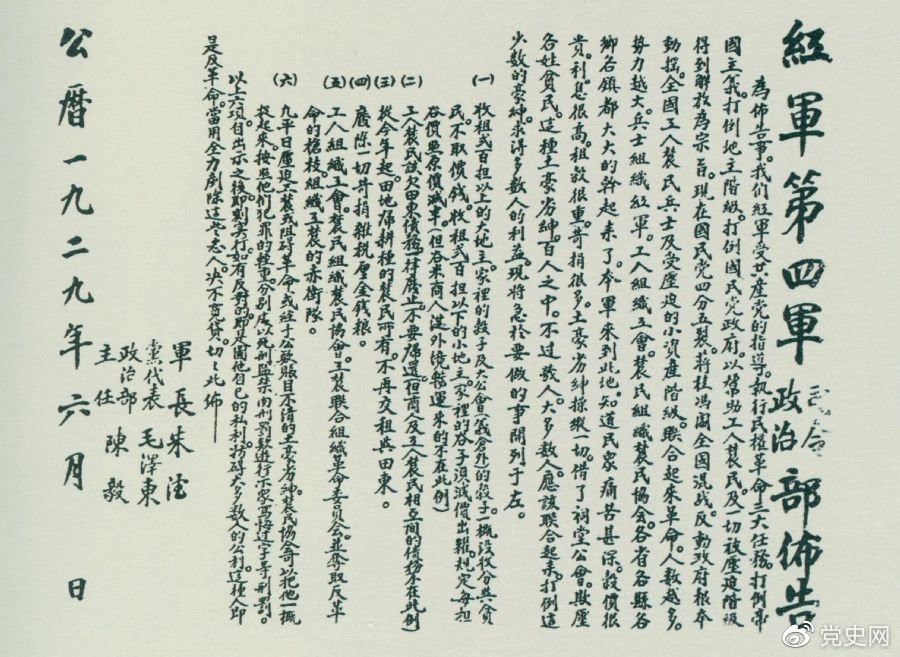 紅軍第四軍司令政治部佈告
為佈告事。我們紅軍受共產黨的指導。執行民權革命三大任務。打倒帝
國主義。打倒地主階級。打倒國民黨政府。以幫助工人農民。及一切被壓迫階級
得到解放為宗旨。現在國民黨四分五裂。蔣桂馮閻全國混战。反動政府根本
動搖。全國工人農民兵士及受壓迫的小資產階級。聯合起來革命。人數越多。
勢力越大。兵士組織紅軍。工人組織工會。農民組織農民協会。各省各縣各
鄉各鎮都大大的幹起來了。本軍來到此地。知道民眾痛苦甚深。穀價很
貴。利息很高。租穀很重。苛捐很多。土豪劣紳操縱一切。借了祠堂公會。欺壓
各姓貧民。這種土豪劣紳。百人之中。不过数人。大多數人。應該联合起來。打倒這
少数的豪紳。求得多数人的利益。現將急於要做的事開列于左。
(一) 收租弍百担以上的大地主。家裡的穀子及大公會(義倉外)的穀子。一概没收分與貧
民。不取價钱。收租弍百担以下的小地主。家裡的谷子。須減價出糶。規定每担
谷價照原價減半。(但谷米商人從外境辦運来的不在此例)
(二) 工人農民該欠田東債務。一律廢止。不要歸還。(但商人及工人農民相互間的債務不在此例)
(三) 從今年起。田地歸耕種的農民所有。不再交租與田東。
(四) 廢除一切苛捐雜稅厘金錢粮。
(五) 工人組織工會。農民組織農民協會。工農联合組織革命委員会。並奪取反革
命的槍枝組織工農的赤衛隊。
(六) 凡平日壓迫工農或阻碍革命。或經手公款賬目不清的土豪劣紳。農民協會可以把他一概
捉起來。按照他们犯罪的輕重。分別處以死刑監禁肉刑罰款遊行示家寫悔过字等刑罰。
以上六項自出示之後。即刻实行。如有反對的即是圖他自己的私利。妨碍大多数人的公利。這種人即
是反革命。當用全力剷除這些惡人。决不寬貸。切切此佈
軍長 朱德
黨代表 毛澤東
政治部主任 陳毅
公曆一九二九年六月 日
党史网